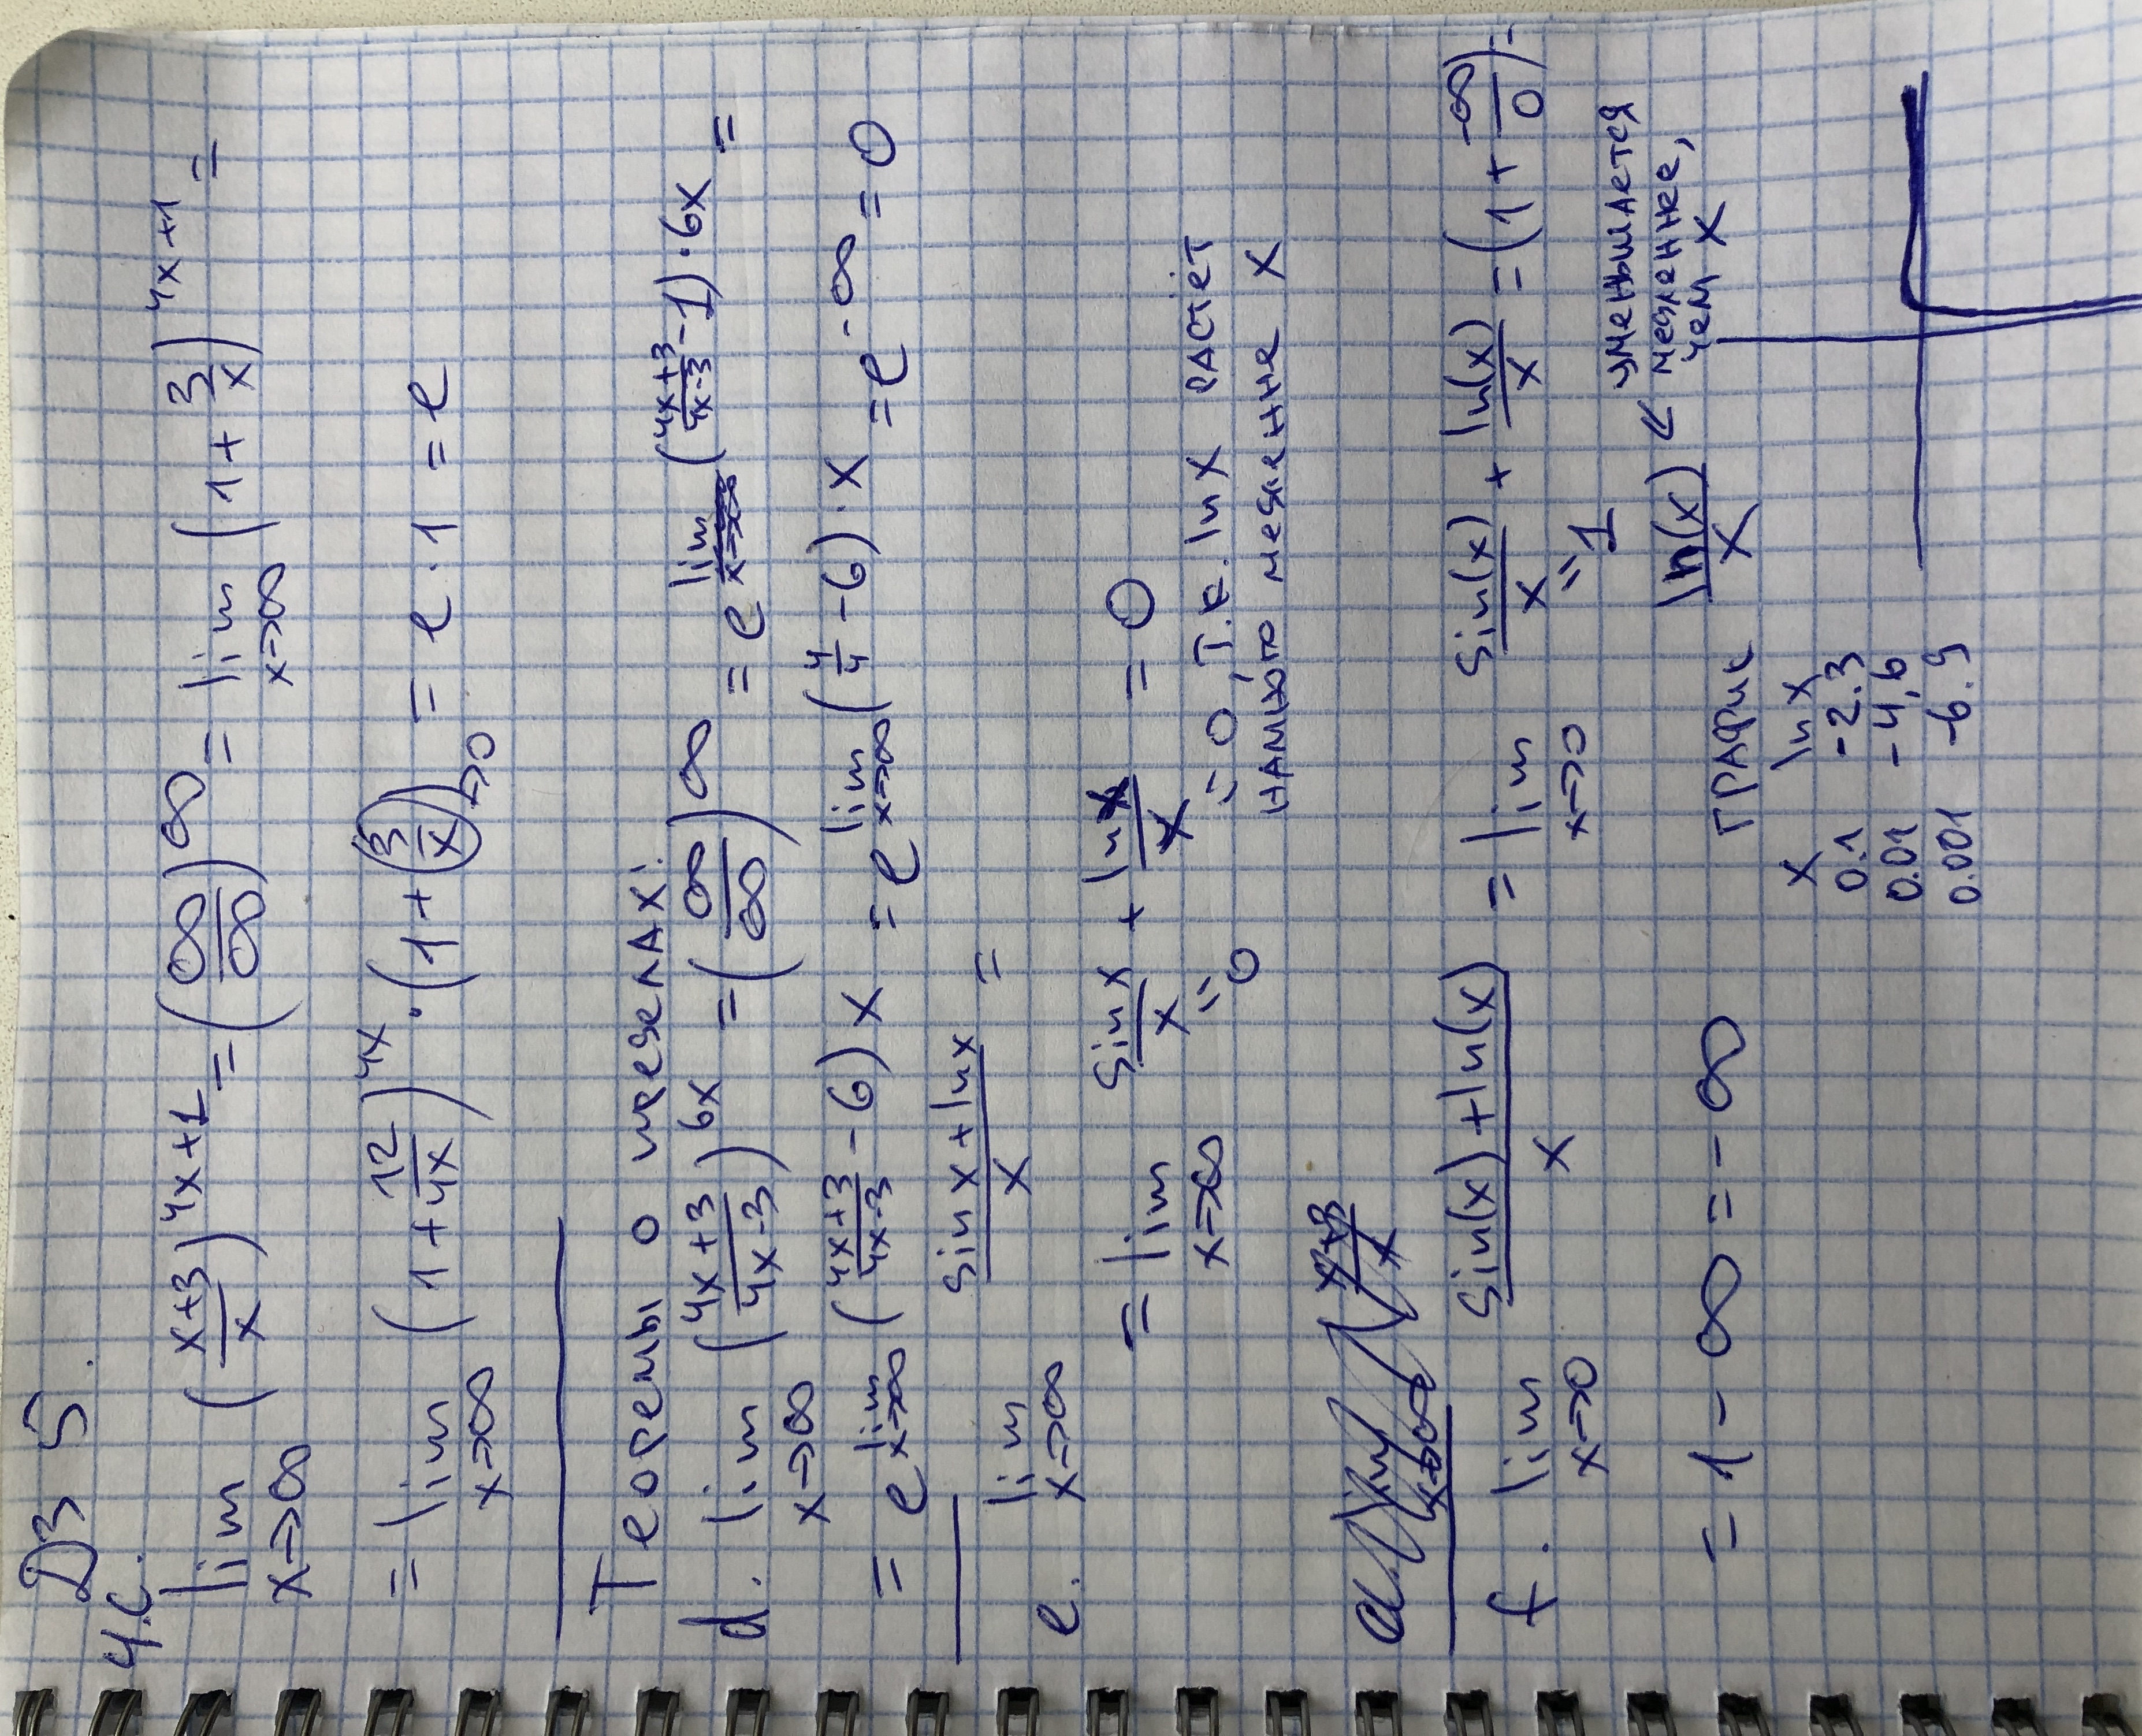 ДЗ 5.
4.c.
lim x→∞ ((x+3)/x)^(4x+1) = (∞/∞)^∞ = lim x→∞ (1 + 3/x)^(4x+1) =
= lim x→∞ (1 + 12/4x)^(4x) · (1 + 3/x) →0 = e · 1 = e
Теоремы о пределах:
d. lim x→∞ ((4x+3)/(4x-3))^(6x) = (∞/∞)^∞ = e^(lim x→∞ ((4x+3)/(4x-3) - 1) · 6x) =
= e^(lim x→∞ ((4x+3)/(4x-3) - 6) x) = e^(lim x→∞ (4/4 - 6) · x) = e^(-∞) = 0
e. lim x→∞ (sin x + ln x)/x =
= lim x→∞ sin x/x + ln x/x = 0
= 0
= 0, т.к. ln x растёт
намного медленне x
a. lim x→∞ (x+3)/x
f. lim x→0 (sin(x) + ln(x))/x = lim x→0 sin(x)/x + ln(x)/x = (1 + -∞/0) =
= 1
= 1 - ∞ = - ∞
график ln(x)/x ← уменьшается
медленнее,
чем x
x ln x
0.1 -2.3
0.01 -4,6
0.001 -6.9